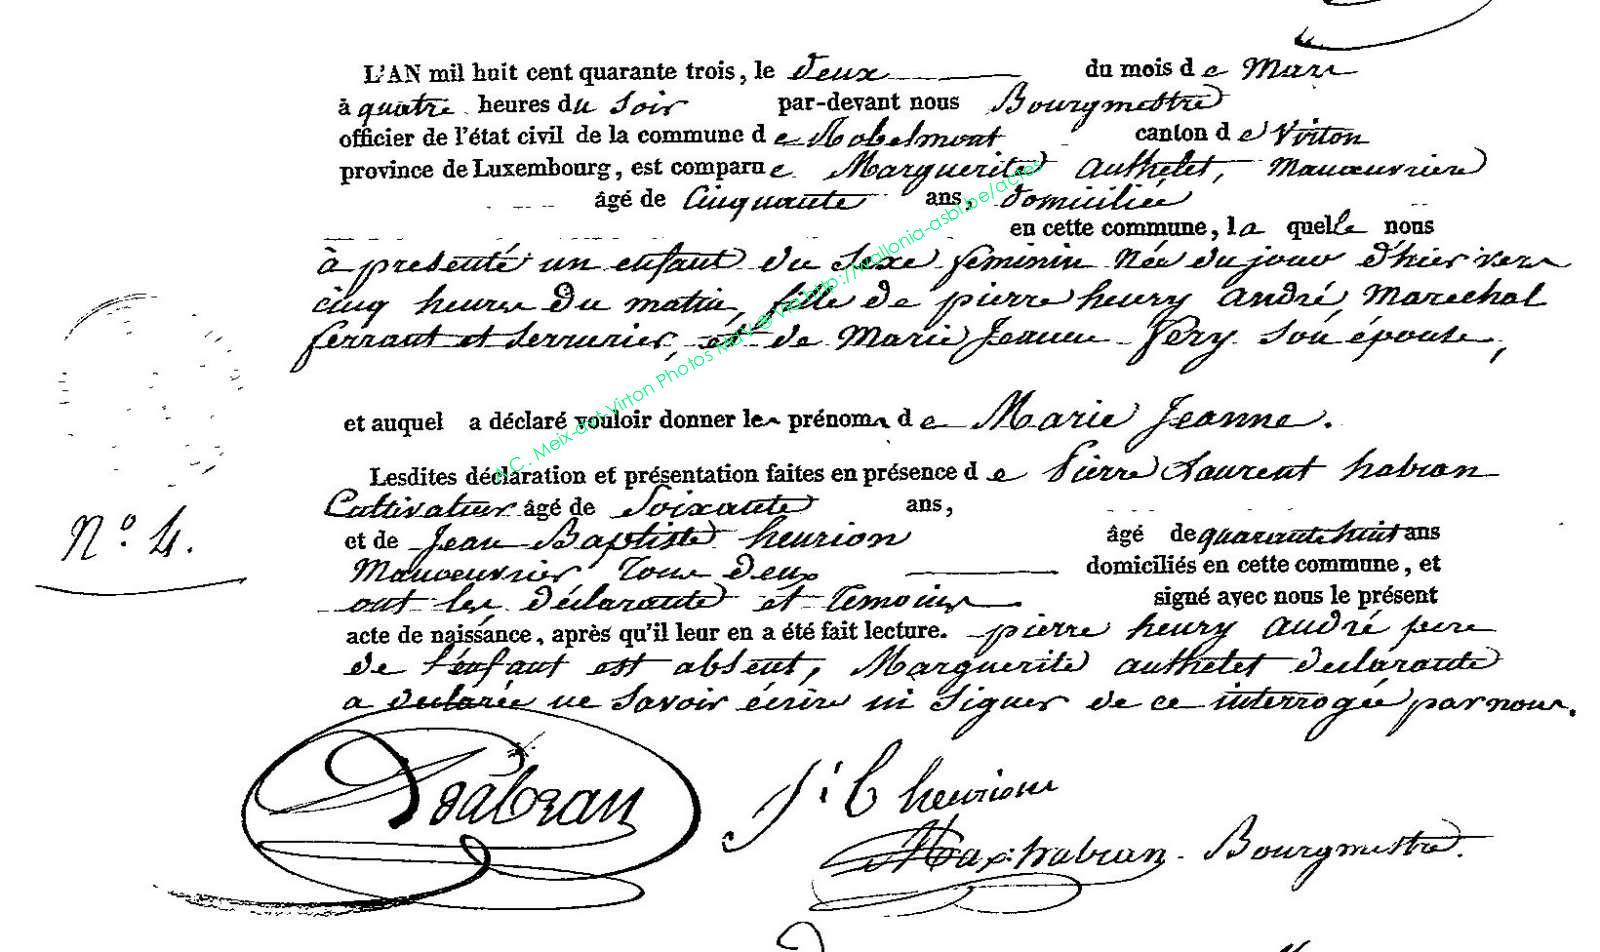 L'AN mil huit cent quarante trois, le deux du mois de Mars
à quatre heures du soir par-devant nous Bourgmestre
officier de l'état civil de la commune de Robelmont canton de Virton
province de Luxembourg, est comparue Marguerite authelet, Manœuvriere
âgé de Cinquante ans, domiciliée
en cette commune, la quelle nous
à presenté un enfant du sexe feminin Née du jour d'hier vers
cinq heures du matin, fille de pierre henry andré Marechal
ferrant et serrurier, et de Marie Jeanne Féry son épouse,
et auquel a déclaré vouloir donner les prénoms de Marie Jeanne.
Lesdites déclaration et présentation faites en présence de Pierre Laurent habran
Cultivateur âgé de Soixante ans,
N.° 4.
et de Jean Baptiste henrion âgé de quarante huit ans
Manœuvrier tous deux domiciliés en cette commune, et
ont les déclarante et temoins signé avec nous le présent
acte de naissance, après qu'il leur en a été fait lecture. pierre henry andré pere
de l'enfant est absent, Marguerite authelet declarante
a declarée ne savoir écrire ni signer de ce interrogée par nous.
habran
J: b henrion
Max: habran Bourgmestre.
A.C. Meix-dvt-Virton Photos MdV @ via http://wallonia-asbl.be/actes